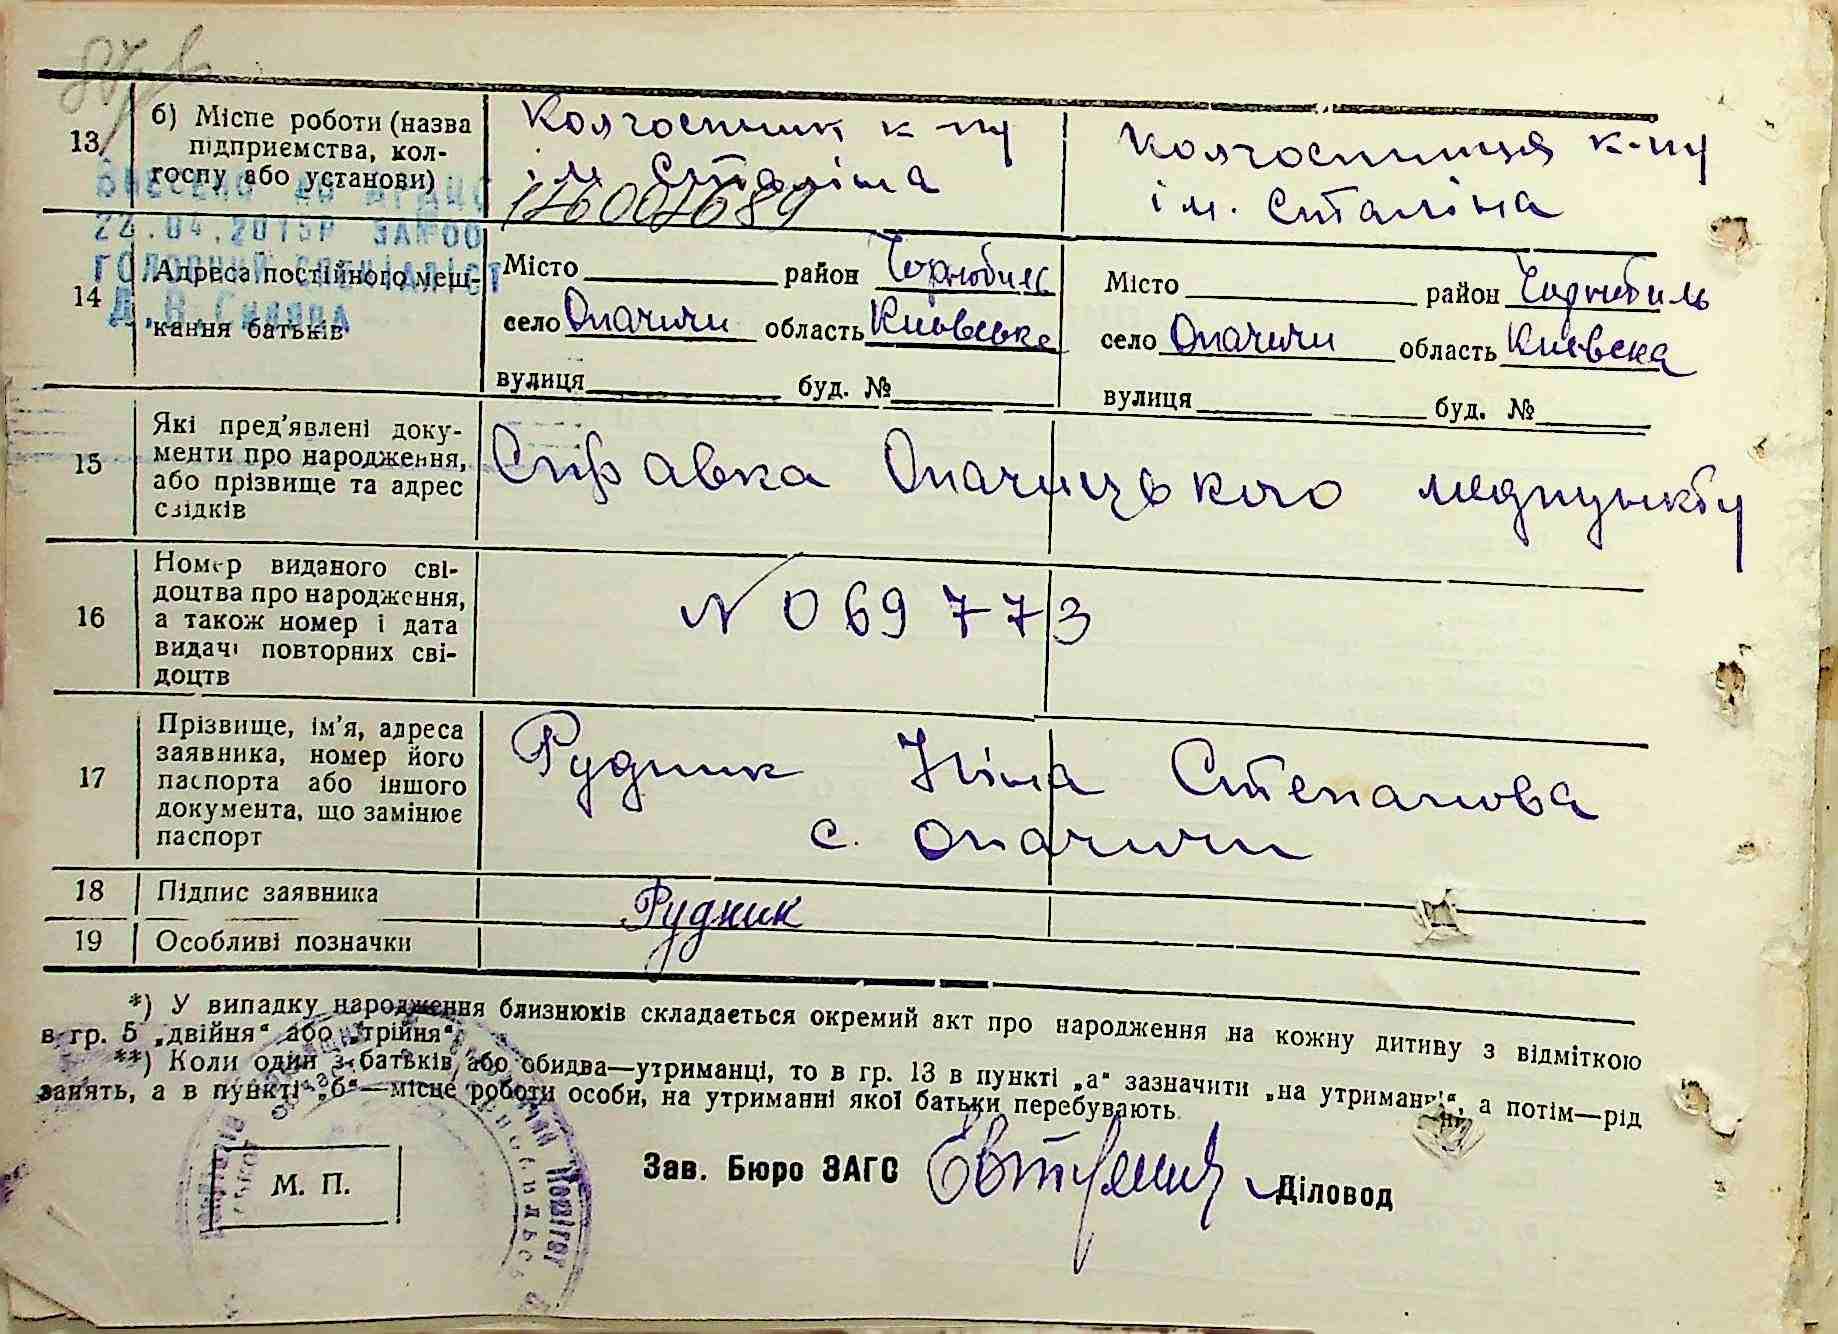 13
б) Місце роботи (назва
підприємства, кол-
госпу або установи)
Колгоспник к-пу
ім Сталіна
176007689
Колгоспниця к-пу
ім. Сталіна
22.04.2015Р
ГОЛОВНИЙ СПЕЦІАЛІСТ
14
Адреса постійного меш-
кання батьків
Місто район Чорнобиль
село Опачичи область Київська
вулиця буд. №
Місто район Чорнобиль
село Опачичи область Киевска
вулиця буд. №
15
Які пред'явлені доку-
менти про народження,
або прізвище та адрес
свідків
Справка Опачицького медпункту
16
Номер виданого сві-
доцтва про народження,
а також номер і дата
видачі повторних сві-
доцтв
N 069773
17
Прізвище, ім'я, адреса
заявника, номер його
паспорта або іншого
документа, що замінює
паспорт
Рудник Ніна Степанова
с. Опачичи
18 Підпис заявника Рудник
19 Особливі позначки
*) У випадку народження близнюків складається окремий акт про народження на кожну дитину з відміткою
в гр. 5 „двійня“ або „трійня“.
**) Коли один з батьків або обидва—утриманці, то в гр. 13 в пункті „а“ зазначити „на утриманні“, а потім—рід
занять, а в пункті „б“—місце роботи особи, на утриманні якої батьки перебувають.
М. П.
Зав. Бюро ЗАГС
Діловод